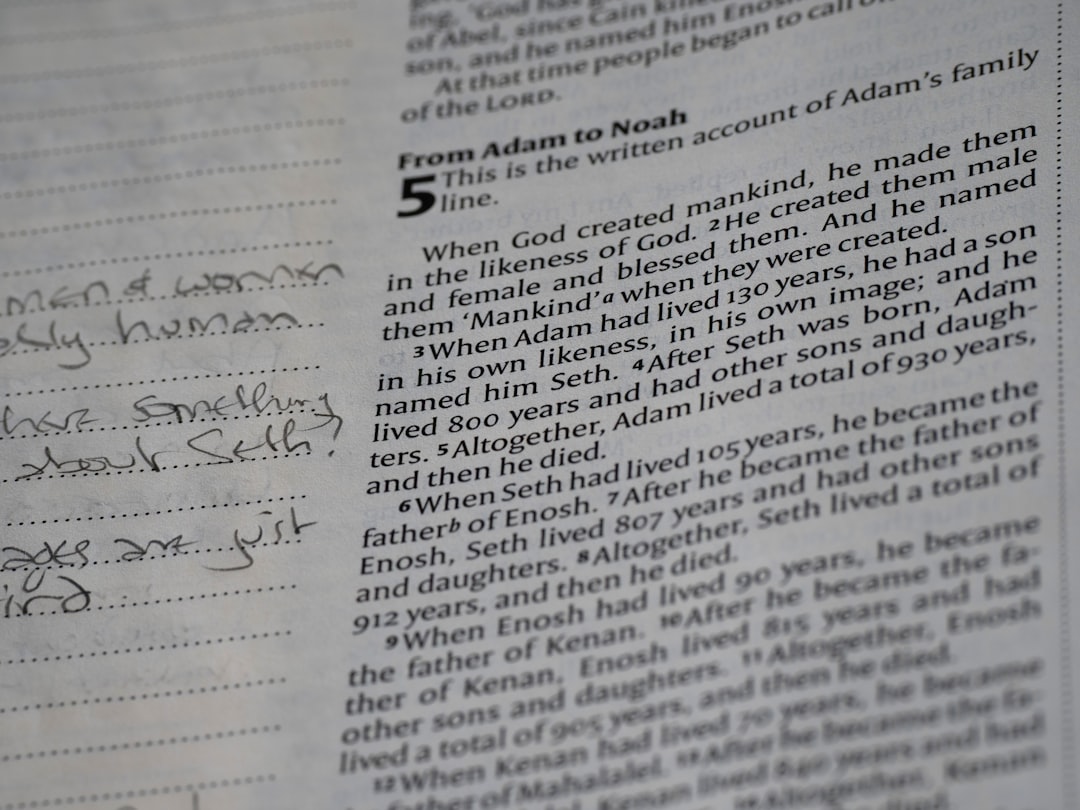 men & women
human
have something
about Seth?
ages are just
ing, 'God has
of Abel, since Cain killed
son, and he named him Enosh
At that time people began to call on
of the LORD.
From Adam to Noah
5 This is the written account of Adam's family
line.
When God created mankind, he made them
in the likeness of God. 2 He created them male
and female and blessed them. And he named
them 'Mankind'a when they were created.
3 When Adam had lived 130 years, he had a son
in his own likeness, in his own image; and he
named him Seth. 4 After Seth was born, Adam
lived 800 years and had other sons and daugh-
ters. 5 Altogether, Adam lived a total of 930 years,
and then he died.
6 When Seth had lived 105 years, he became the
fatherb of Enosh. 7 After he became the father of
Enosh, Seth lived 807 years and had other sons
and daughters. 8 Altogether, Seth lived a total of
912 years, and then he died.
9 When Enosh had lived 90 years, he became
the father of Kenan. 10 After he became the fa-
ther of Kenan, Enosh lived 815 years and had
other sons and daughters. 11 Altogether, Enosh
lived a total of 905 years, and then he died.
12 When Kenan had lived 70 years, he became
father of Mahalalel. 13 After he became the fa-
Kenan lived 840 years and had
Altogether, Kenan